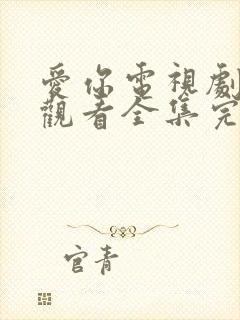 愛你電視劇
觀看全集完
官青